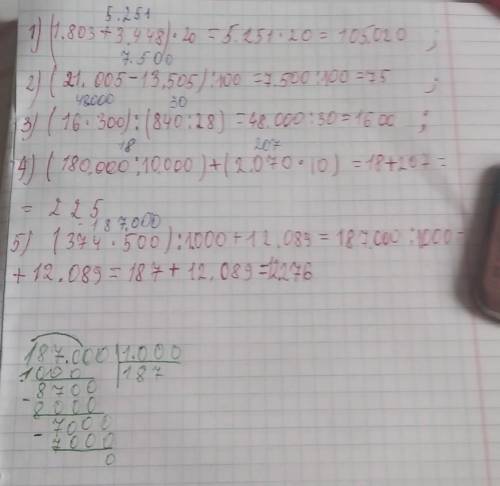 5.251
1) (1.803+3.448)·20=5.251·20=105.020 ;
7.500
2) (21.005-13.505):100=7.500:100=75 ;
48000 30
3) (16·300):(840:28)=48.000:30=1600 ;
18 207
4) (180.000:10.000)+(2.070·10)=18+207=
=225
187.000
5) (374·500):1000+12.089=187.000:1000-
+12.089=187+12.089=12276
187.000 1.000
1000 187
8700
-8000
7000
-7000
0